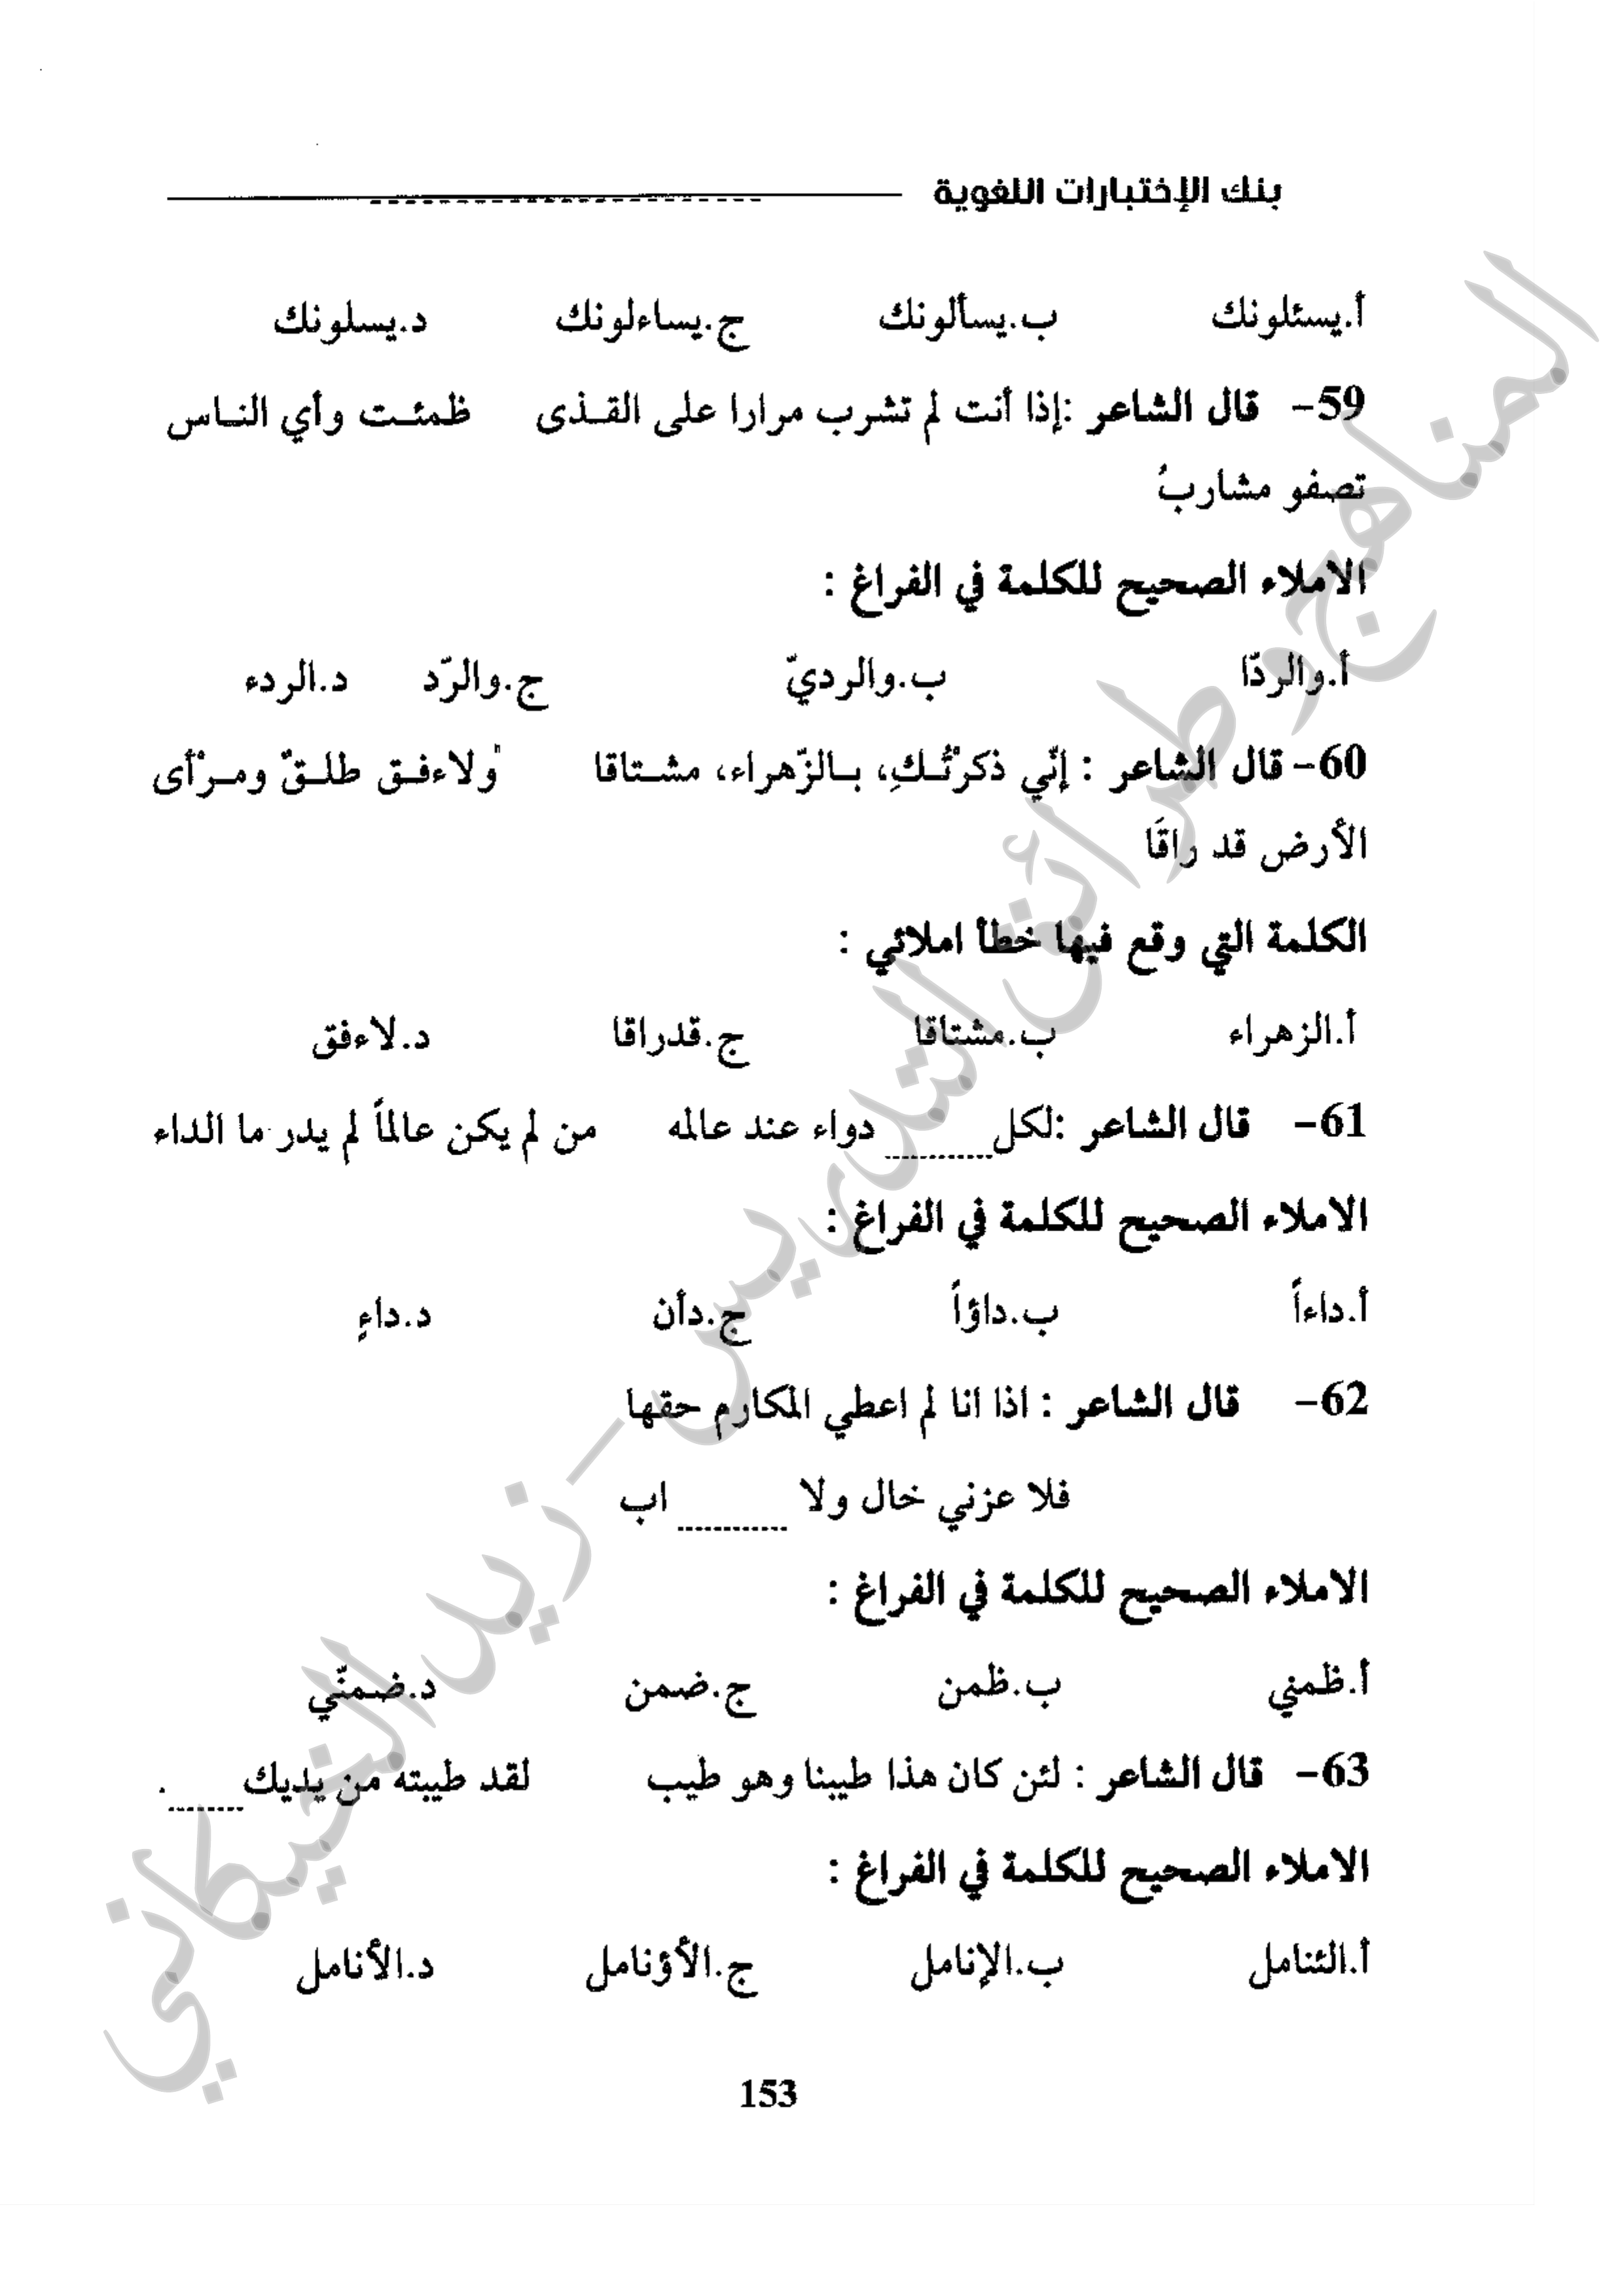 بنك الإختبارات اللغوية
أ.يسئلونك ب.يسألونك ج.يساءلونك د.يسلونك
59- قال الشاعر :إذا أنت لم تشرب مرارا على القذى ظمئت وأي الناس
تصفو مشاربُ
الاملاء الصحيح للكلمة في الفراغ :
أ.والردّا ب.والرديّ ج.والرّد د.الردء
60- قال الشاعر : إنّي ذكرْتُكِ، بالزّهراء، مشتاقا ولاءفق طلقٌ ومرْأى
الأرض قد راقَا
الكلمة التي وقع فيها خطأ املائي :
أ.الزهراء ب.مشتاقا ج.قدراقا د.لاءفق
61- قال الشاعر :لكل.......... دواء عند عالمه من لم يكن عالماً لم يدر ما الداء
الاملاء الصحيح للكلمة في الفراغ :
أ.داءاً ب.داؤاً ج.دأن د.داءٍ
62- قال الشاعر : اذا انا لم اعطي المكارم حقها
فلا عزني خال ولا .......... اب
الاملاء الصحيح للكلمة في الفراغ :
أ.ظمني ب.ظمن ج.ضمن د.ضمنّي
63- قال الشاعر : لئن كان هذا طيبنا وهو طيب لقد طيبته من يديك....... .
الاملاء الصحيح للكلمة في الفراغ :
أ.الئنامل ب.الإنامل ج.الأؤنامل د.الأنامل
153
المناهج وطرائق التدريس - زيد الخيكاني